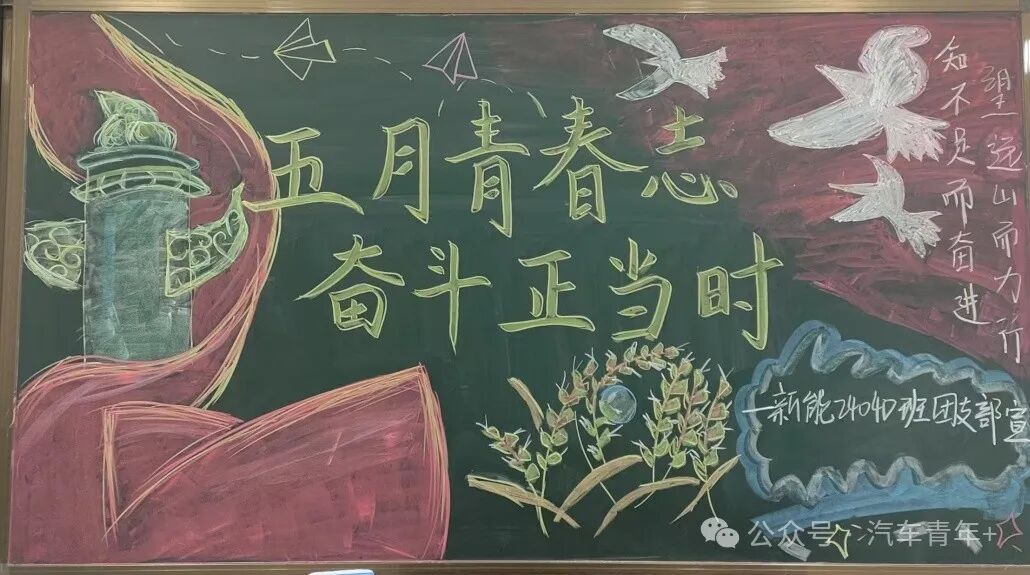 五月青春志
奋斗正当时
知不足而奋进
望远山而力行
一新能24040班团支部宣
公众号·汽车青年+